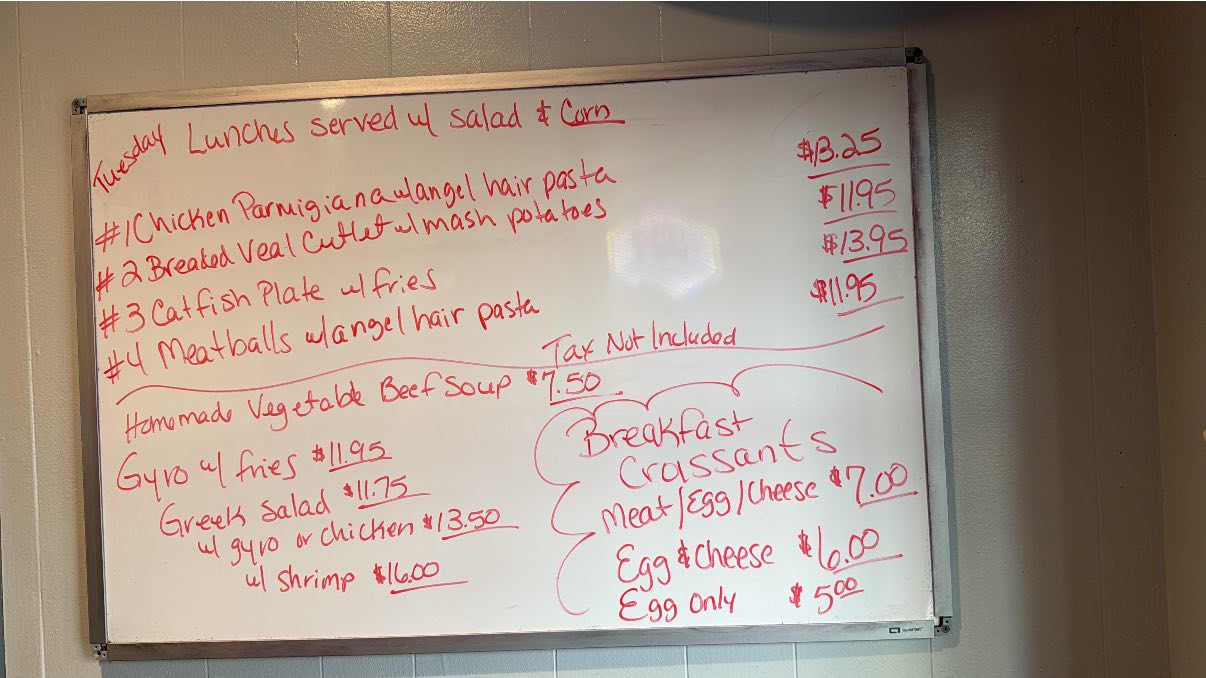 Tuesday Lunches served w/ salad & Corn
#1 Chicken Parmigiana w/ angel hair pasta $13.25
#2 Breaded Veal Cutlet w/ mash potatoes $11.95
#3 Catfish Plate w/ fries $13.95
#4 Meatballs w/ angel hair pasta $11.95
Tax Not Included
Homemade Vegetable Beef Soup $7.50
Gyro w/ fries $11.95
Greek Salad $11.75
w/ gyro or chicken $13.50
w/ shrimp $16.00
Breakfast
Croissants
Meat/Egg/Cheese $7.00
Egg & Cheese $6.00
Egg only $5.00